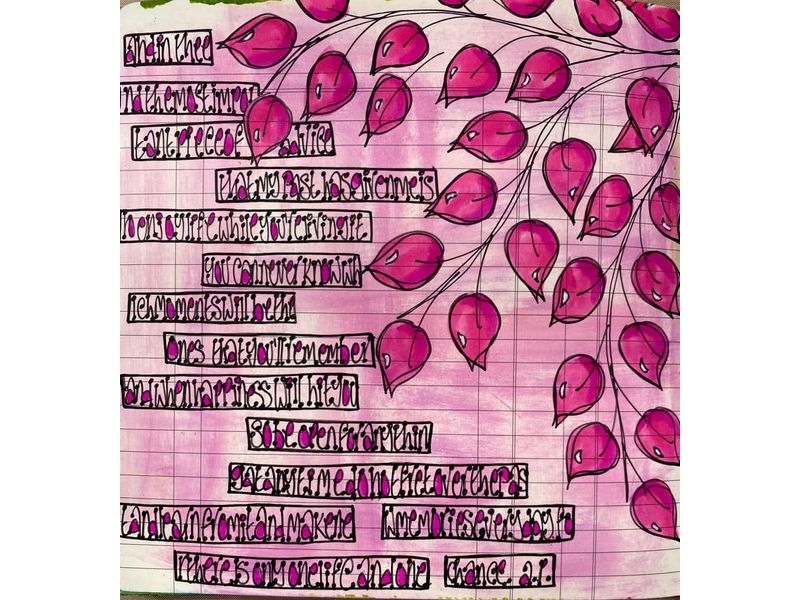 And in thee
nd the most impor
tant piece of advice
that my past has given me is
to enjoy life while you're living it
you can never know wh
ich moments will be the
ones that you'll remember
and when happiness will hit you
So be open for anythin
g at any time do not fret over the pas
t and learn from it and make ne w memories every day fo
r there is only one life and one chance. a.l.